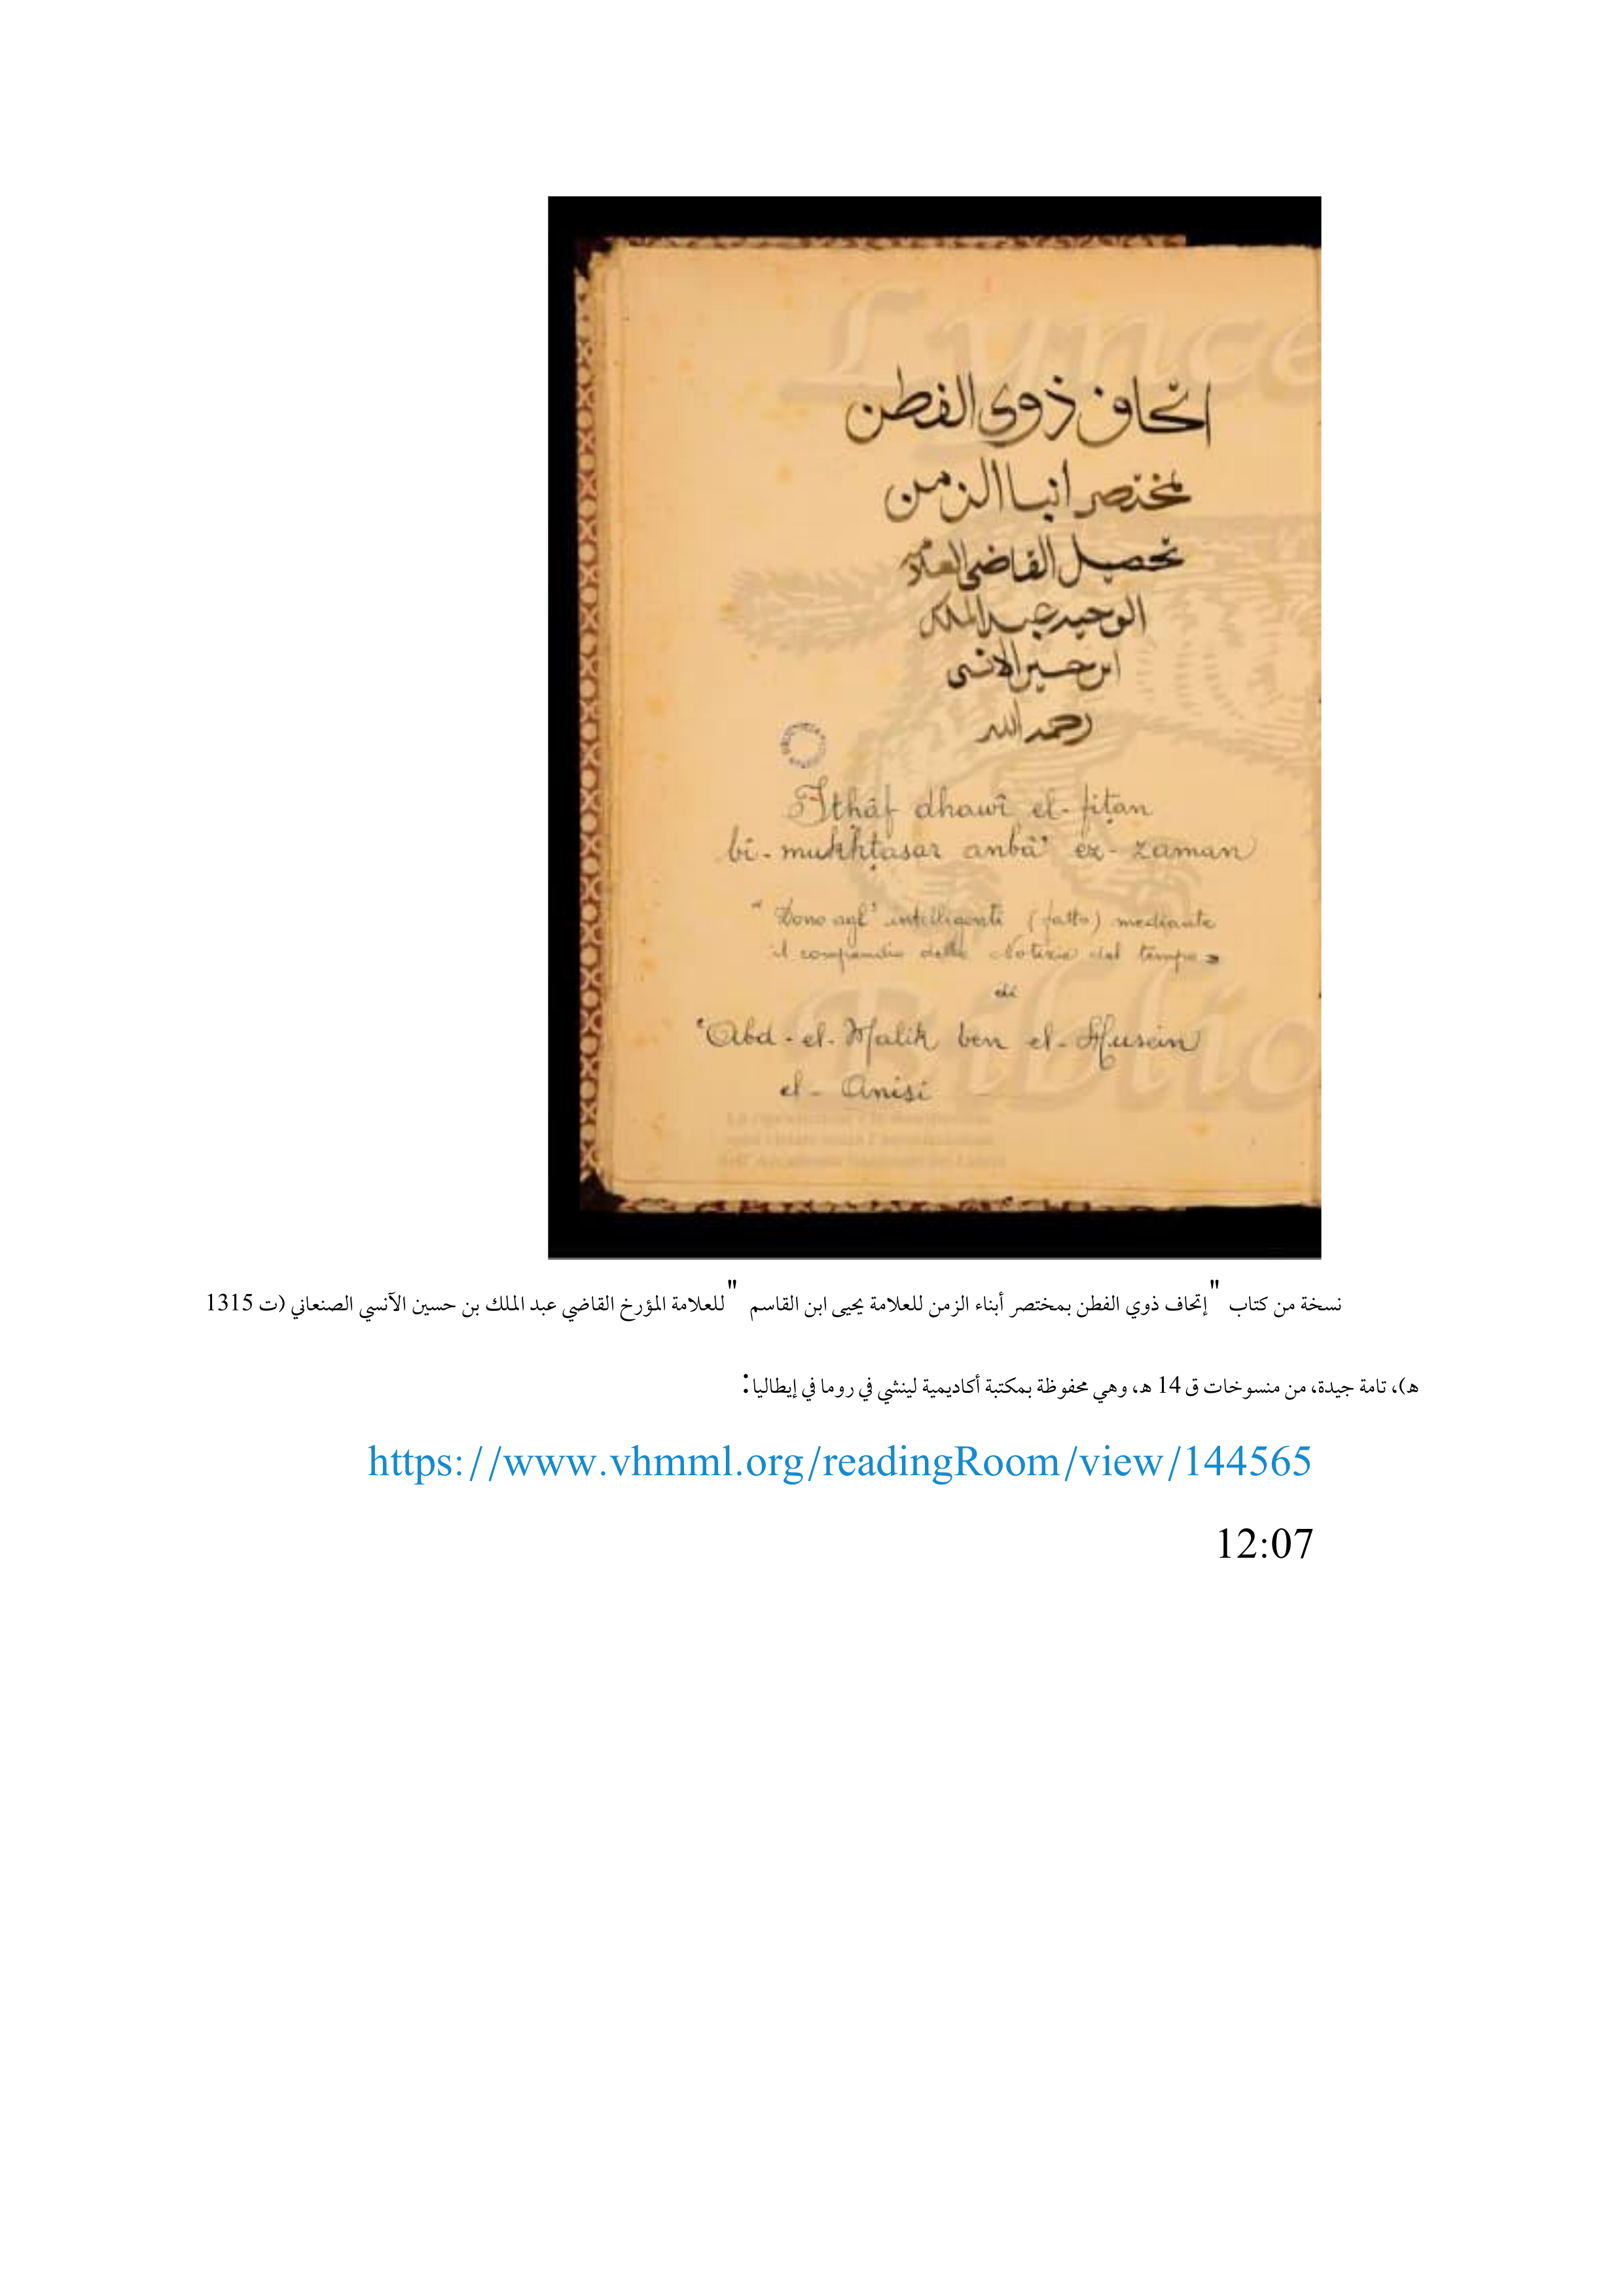 اتحاف ذوى الفطن
بمختصر انبا الزمن
تحصيل القاضى العلامه
الوحيد عبد الملك
ابن حسين الانسى
رحمه الله
Itḥâf dhawî el-fiṭan
bi-mukhtaṣar anbâ' ez-zaman
"Dono agl' intelligenti (fatto) mediante
il compendio delle Notizie del tempo"
di
'Abd-el-Malik ben el-Husein
el-Anisi
نسخة من كتاب "إتحاف ذوي الفطن بمختصر أبناء الزمن للعلامة يحيى ابن القاسم" للعلامة المؤرخ القاضي عبد الملك بن حسين الآنسي الصنعاني (ت 1315
هـ)، تامة جيدة، من منسوخات ق 14 هـ، وهي محفوظة بمكتبة أكاديمية لينشي في روما في إيطاليا:
https://www.vhmml.org/readingRoom/view/144565
12:07